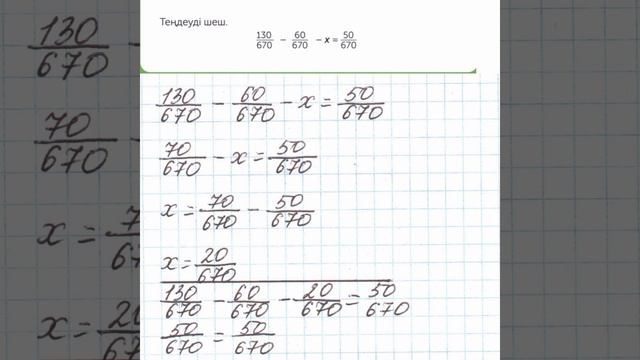 Теңдеуді шеш.
130/670 − 60/670 − x = 50/670
130/670 − 60/670 − x = 50/670
70/670 − x = 50/670
x = 70/670 − 50/670
x = 20/670
130/670 − 60/670 − 20/670 = 50/670
50/670 = 50/670